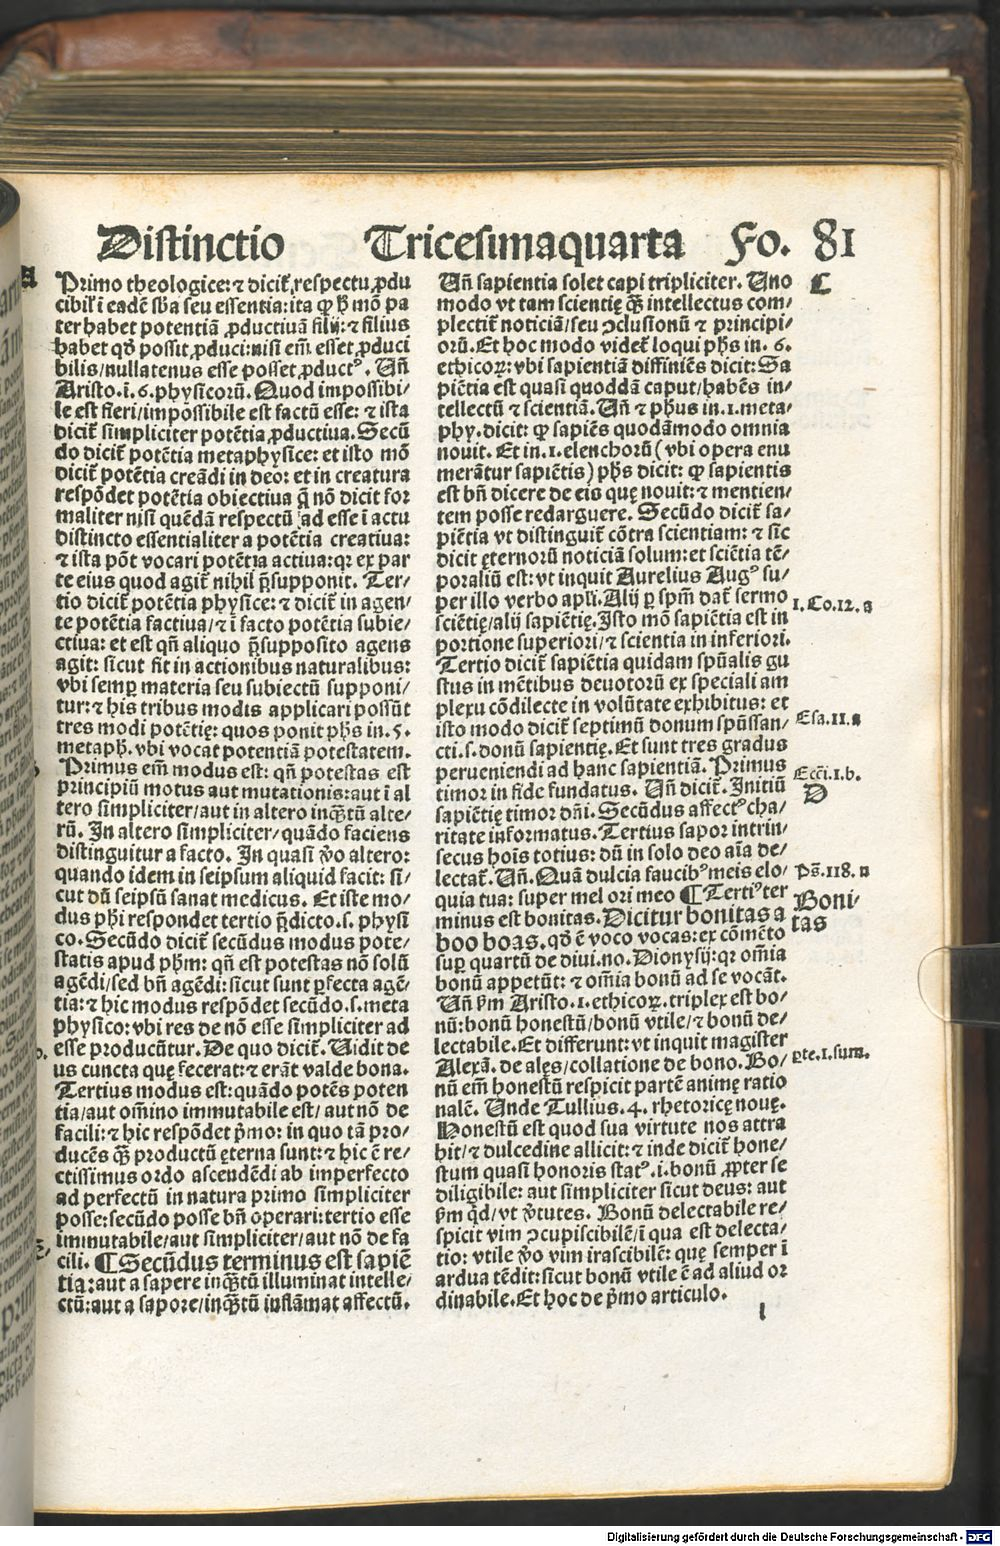 Distinctio Tricesimaquarta Fo. 81
Primo theologice: ⁊ dicit̃ respectu ꝓdu
cibilꝭ ĩ eadẽ sb̃a seu essentia: ita ꝙ h̃ mõ pa
ter habet potentiã ꝓductiuã filij: ⁊ filius
habet qđ possit ꝓduci: nisi em̃ esset ꝓduci
bilis/nullatenus esse posset ꝓductꝰ. Uñ
Aristo. ĩ. 6. physicorũ. Quod impossibi/
le est fieri/impossibile est factũ esse: ⁊ ista
dicit̃ simpliciter potẽtia ꝓductiua. Secũ
do dicit̃ potẽtia metaphysice: et isto mõ
dicit̃ potẽtia creãdi in deo: et in creatura
respõdet potẽtia obiectiua q̃ nõ dicit for
maliter nisi quẽdã respectũ ad esse ĩ actu
distincto essentialiter a potẽtia creatiua:
⁊ ista põt vocari potẽtia actiua: qꝛ ex par
te eius quod agit̃ nihil p̃supponit. Ter/
tio dicit̃ potẽtia physice: ⁊ dicit̃ in agen/
te potẽtia factiua/⁊ ĩ facto potẽtia subie/
ctiua: et est qñ aliquo p̃supposito agens
agit: sicut fit in actionibus naturalibus:
vbi semꝑ materia seu subiectũ supponi/
tur: ⁊ his tribus modis applicari possũt
tres modi potẽtię: quos ponit ph̃s in. 5.
metaph. vbi vocat potentiã potestatem.
Primus em̃ modus est: qñ potestas est
principiũ motus aut mutationis: aut ĩ al
tero simpliciter/aut in altero inqꝫ̃tũ alte/
rũ. In altero simpliciter/quãdo faciens
distinguitur a facto. In quasi ṽo altero:
quando idem in seipsum aliquid facit: si/
cut dũ seipsũ sanat medicus. Et iste mo/
dus phi respondet tertio p̃dicto. s. physi
co. Secũdo dicit̃ secũdus modus pote/
statis apud ph̃m: qñ est potestas nõ solũ
agẽdi/sed bñ agẽdi: sicut sunt ꝑfecta agẽ/
tia: ⁊ hic modus respõdet secũdo. s. meta
physico: vbi res de nõ esse simpliciter ad
esse producũtur. De quo dicit̃. Uidit de
us cuncta quę fecerat: ⁊ erãt valde bona.
Tertius modus est: quãdo potẽs poten
tia/aut om̃ino immutabile est/ aut nõ de
facili: ⁊ hic respõdet p̃mo: in quo tã pro/
ducẽs qꝫ̃ productũ ęterna sunt: ⁊ hic ẽ re/
ctissimus ordo ascendẽdi ab imperfecto
ad perfectũ in natura primo simpliciter
posse: secũdo posse bñ operari: tertio esse
immutabile/aut simpliciter/aut nõ de fa
cili. ¶ Secũdus terminus est sapiẽ
tia: aut a sapere inqꝫ̃tũ illuminat intelle/
ctũ: aut a sapore/inqꝫ̃tũ inflãmat affectũ.
Uñ sapientia solet capi tripliciter. Uno
modo vt tam scientię qꝫ̃ intellectus com/
plectit̃ noticiã/seu ↄclusionũ ⁊ principi/
orũ. Et hoc modo videt̃ loqui ph̃s in. 6.
ethicoꝝ: vbi sapientiã diffiniẽs dicit: Sa
piẽtia est quasi quoddã caput/habẽs in/
tellectũ ⁊ scientiã. Uñ ⁊ ph̃us in. 1. meta/
phy. dicit: ꝙ sapiẽs quodãmodo omnia
nouit. Et in. 1. elenchorũ (vbi opera enu
merãtur sapiẽtis) ph̃s dicit: ꝙ sapientis
est bñ dicere de eis quę nouit: ⁊ mentien/
tem posse redarguere. Secũdo dicit̃ sa/
piẽtia vt distinguit̃ cõtra scientiam: ⁊ sic
dicit ęternorũ noticiã solum: et sciẽtia tẽ/
poraliũ est: vt inquit Aurelius Augꝰ su/
per illo verbo apl̃i. Alij ꝑ spm̃ dat̃ sermo
sciẽtię/alij sapiẽtię. Isto mõ sapiẽtia est in
portione superiori/⁊ scientia in inferiori.
Tertio dicit̃ sapiẽtia quidam spũalis gu
stus in mẽtibus deuotorũ ex speciali am
plexu cõdilecte in volũtate exhibitus: et
isto modo dicit̃ septimũ donum spũssan/
cti. s. donũ sapientię. Et sunt tres gradus
perueniendi ad hanc sapientiã. Primus
timor in fide fundatus. Uñ dicit̃. Initiũ
sapiẽtię timor dñi. Secũdus affectꝰ cha/
ritate informatus. Tertius sapor intrin/
secus hoĩs totius: dũ in solo deo aĩa de/
lectat̃. Uñ. Quã dulcia faucibꝰ meis elo/
quia tua: super mel ori meo ¶ Tertiꝰ ter
minus est bonitas. Dicitur bonitas a
boo boas. qđ ẽ voco vocas: ex cõmẽto
suꝑ quartũ de diui. no. Dionysij: qꝛ om̃ia
bonũ appetũt: ⁊ om̃ia bonũ ad se vocãt.
Uñ ẞm Aristo. 1. ethicoꝝ. triplex est bo/
nũ: bonũ honestũ/bonũ vtile/⁊ bonũ de/
lectabile. Et differunt: vt inquit magister
Alexã. de ales/collatione de bono. Bo/
nũ em̃ honestũ respicit partẽ animę ratio
nalẽ. Unde Tullius. 4. rhetoricę nouę.
Honestũ est quod sua virtute nos attra
hit/⁊ dulcedine allicit: ⁊ inde dicit̃ hone/
stum quasi honoris statꝰ. i. bonũ ꝓpter se
diligibile: aut simpliciter sicut deus: aut
ẞm qđ/vt ṽtutes. Bonũ delectabile re/
spicit vim ↄcupiscibilẽ/ĩ qua est delecta/
tio: vtile ṽo vim irascibilẽ: quę semper ĩ
ardua tẽdit: sicut bonũ vtile ẽ ad aliud oꝛ
dinabile. Et hoc de p̃mo articulo.
l
C
1. Co. 12. a
Esa. 11. a
Ecci. 1. b.
D
Ps̃. 118. n
Boni/
tas
ꝑte. 1. sum.
Digitalisierung gefördert durch die Deutsche Forschungsgemeinschaft - DFG